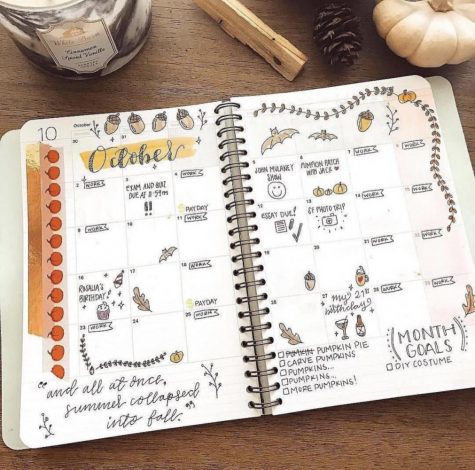 White Barn
Cinnamon
Spiced Vanilla
10
October
October
WORK
EXAM AND QUIZ
DUE AT 11:59PM
!!
WORK
PAYDAY
WORK
WORK
ROSALIA'S
BIRTHDAY!
PAYDAY
WORK
WORK
"and all at once,
summer collapsed
into fall."
JOHN MULANEY
SHOW
PUMPKIN PATCH
WITH JACK
WORK
ESSAY DUE!
SF PHOTO TRIP
WORK
WORK
my 21st
birthday!
WORK
PUMPKIN PUMPKIN PIE
CARVE PUMPKINS
PUMPKINS...
PUMPKINS...
MORE PUMPKINS!
MONTH
GOALS
DIY COSTUME